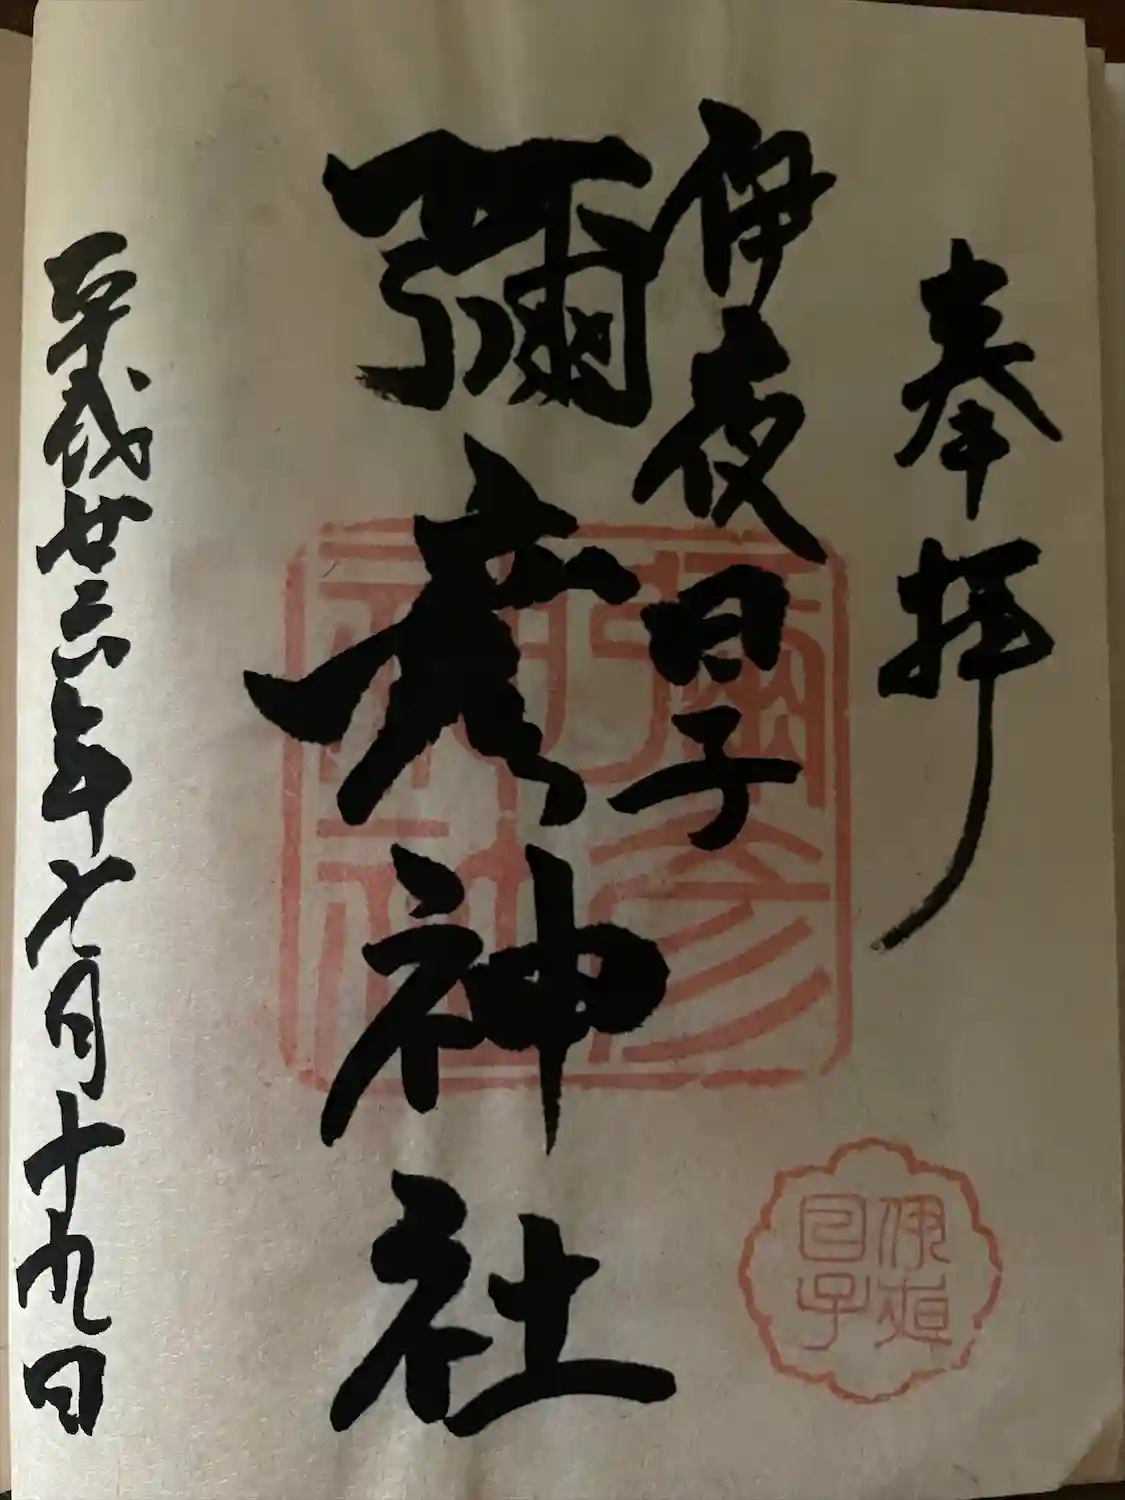 奉拝
伊夜日子
彌彦神社
平成廿六年七月十九日
彌彦
神社
伊夜
日子